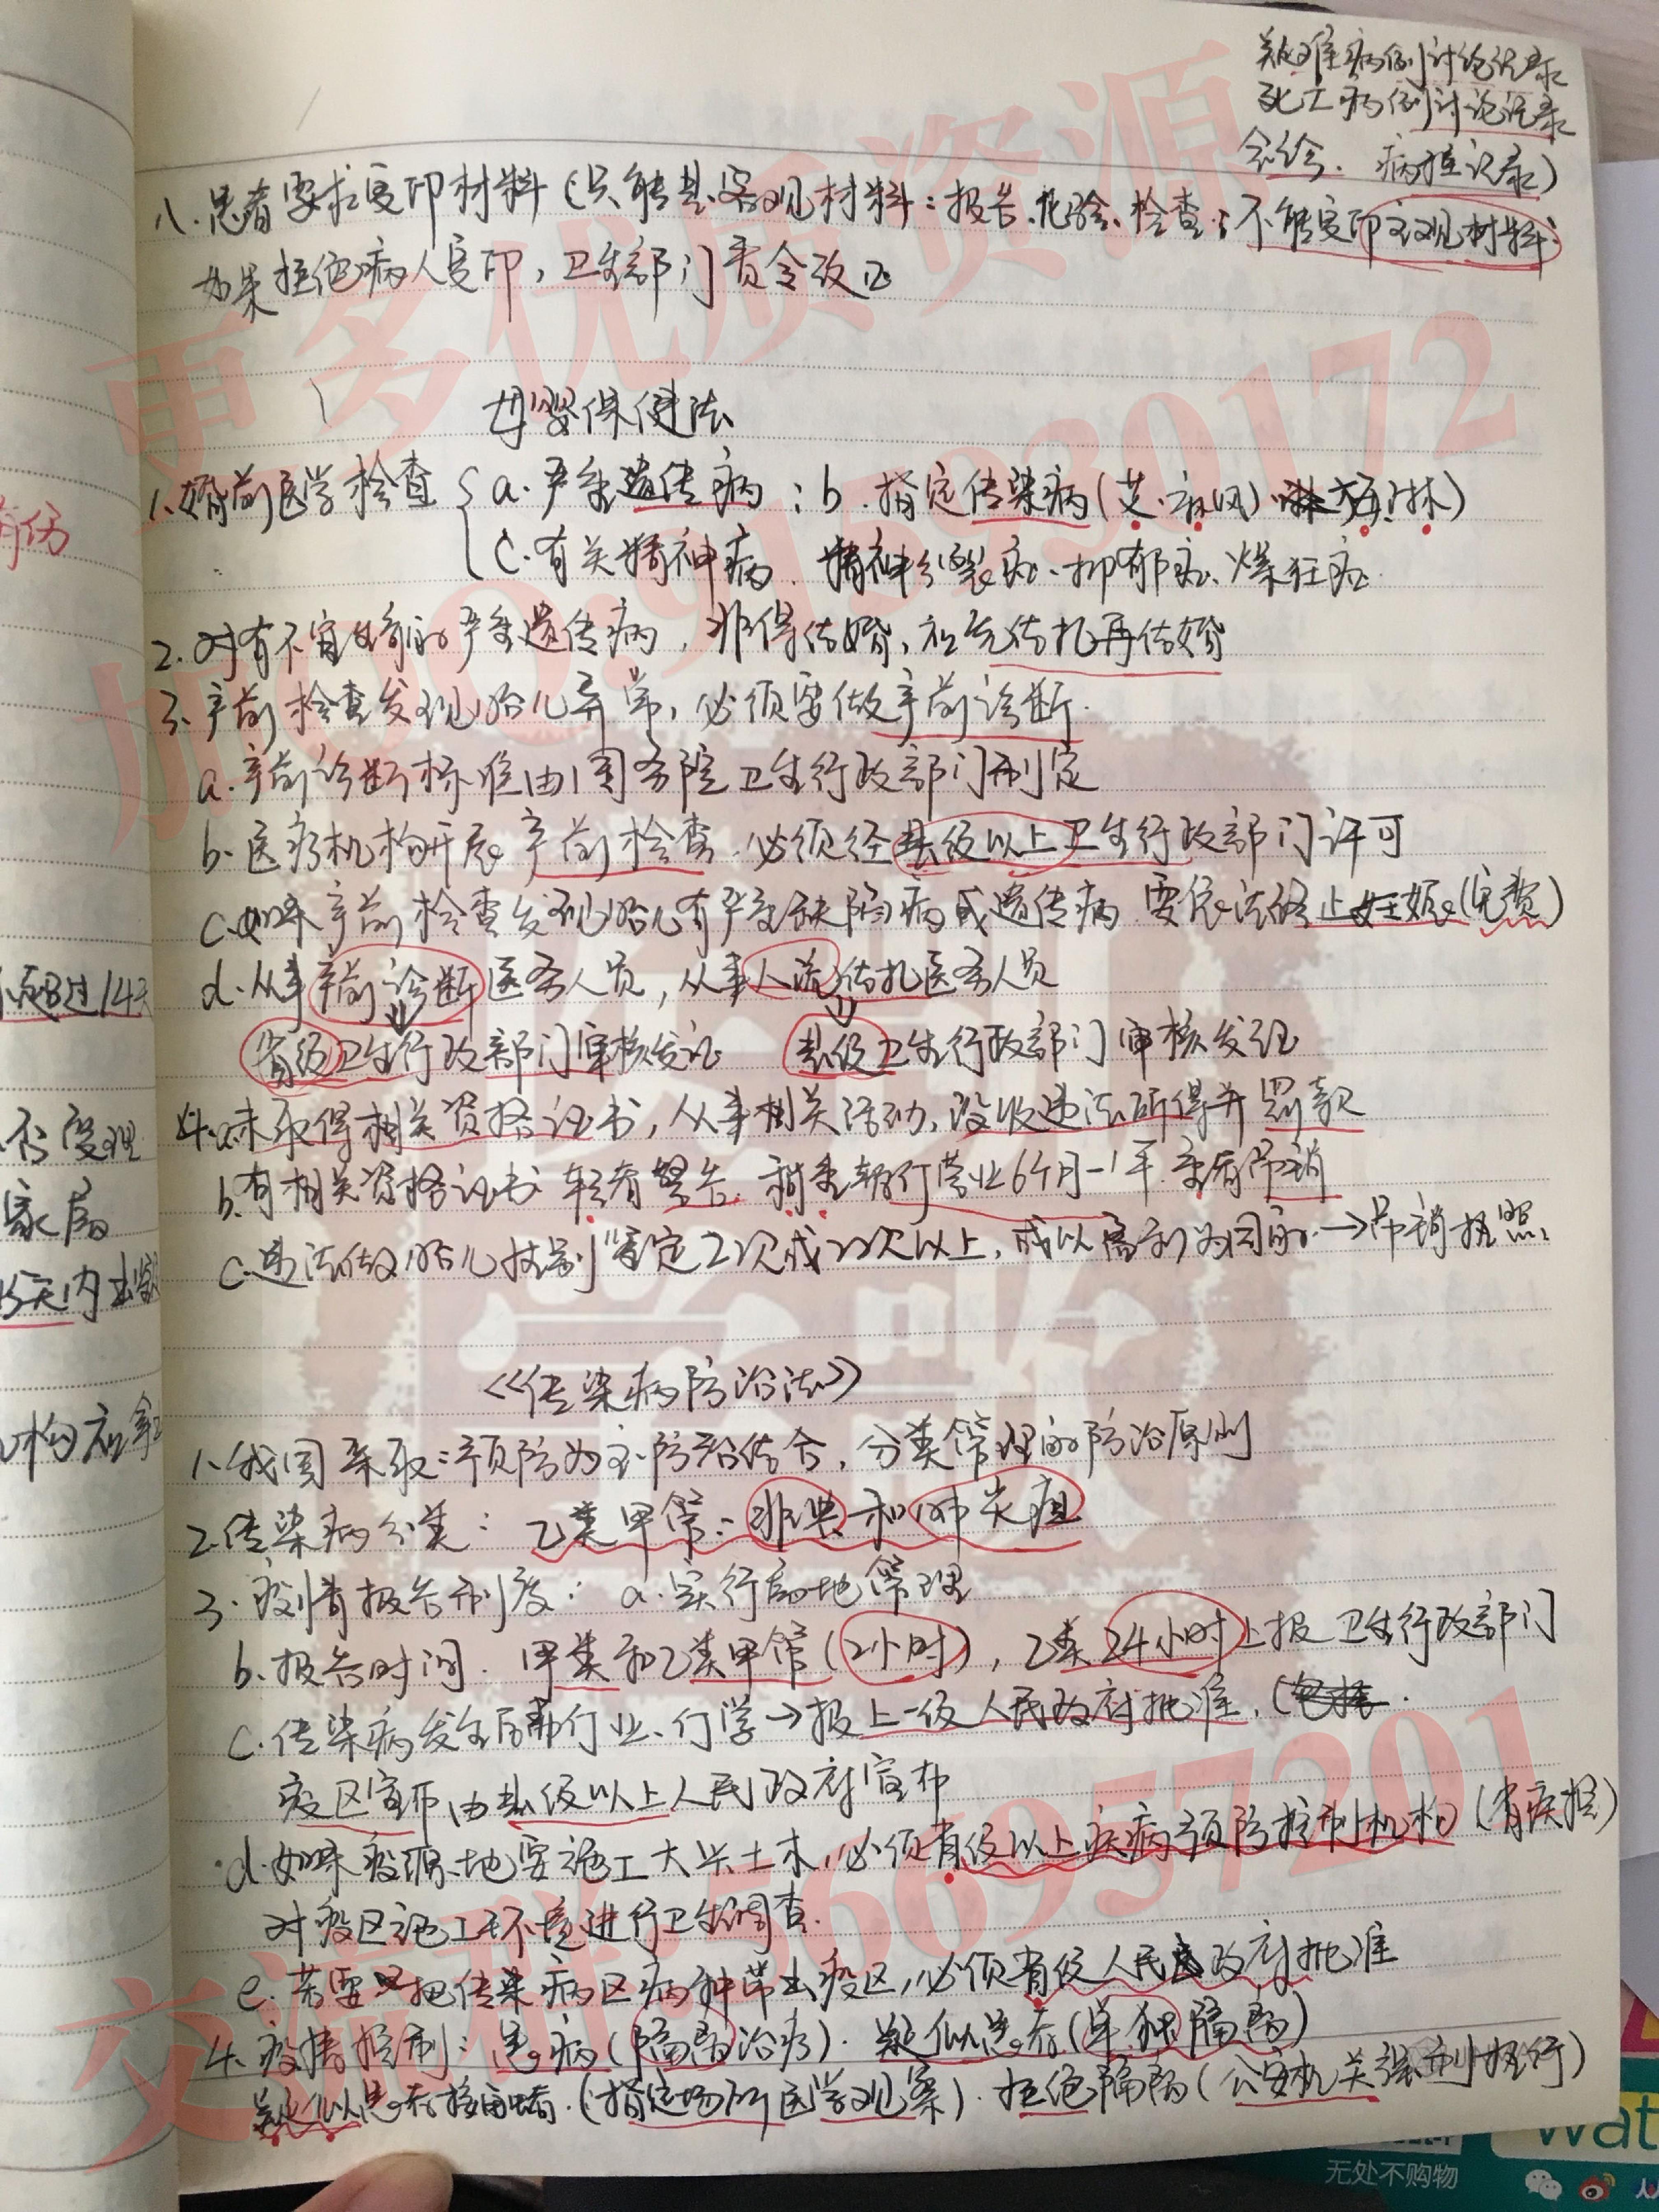 疑难病例讨论记录
死亡病例讨论记录
会诊、病程记录)
八.患者要求复印材料(只能基.客观材料:报告.化验、检查;不能复印主观材料:
如果拒绝病人复印,卫生部门责令改正
母婴保健法
1.婚前医学检查 a.严重遗传病;b.指定传染病(艾.麻风)梅.淋)
c.有关精神病.精神分裂症、抑郁症、燥狂症.
2.对有不宜生育的严重遗传病,非得结婚,应先结扎再结婚
3.产前检查发现胎儿异常,必须要做产前诊断.
a.产前诊断标准由国务院卫生行政部门制定
b.医疗机构开展产前检查.必须经县级以上卫生行政部门许可
c.如果产前检查发现胎儿有严重缺陷病或遗传病.要依法终止妊娠(免费)
d.从事产前诊断医务人员,从事人流、结扎医务人员
省级卫生行政部门审核发证 县级卫生行政部门审核发证
4.a.未取得相关资格证书,从事相关活动,没收违法所得并罚款
b.有相关资格证书.轻者警告.稍重暂停营业6个月-1年.重者吊销
c.违法做胎儿性别鉴定2次或2次以上,或以营利为目的.→吊销执照.
《传染病防治法》
1.我国采取:预防为主.防治结合,分类管理的防治原则
2.传染病分类:乙类甲管:非典和肺炭疽
3.疫情报告制度:a.实行属地管理
b.报告时间.甲类和乙类甲管(2小时),乙类24小时上报卫生行政部门
c.传染病发生后停业、停学→报上一级人民政府批准,(包括.
疫区宣布由县级以上人民政府宣布
d.如果疫源地要施工大兴土木,必须省级以上疾病预防控制机构(省疾控)
对疫区施工环境进行卫生调查.
e.若要把传染病区病种带出疫区,必须省级人民政府批准
4.疫情控制:患病(隔离治疗).疑似患者(单独隔离)
疑似患者接触者.(指定场所医学观察).拒绝隔离(公安机关强制执行)
不超过14天
不受理
家属
内出
构应
无处不购物
wat